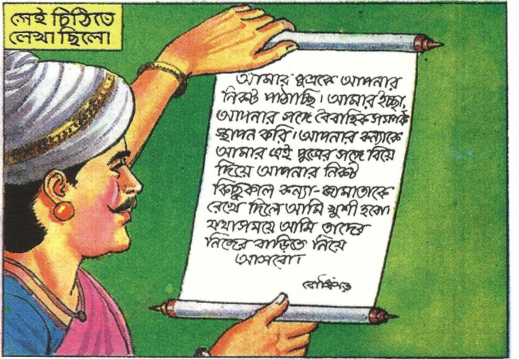 সেই চিঠিতে
লেখা ছিলো
আমার পুত্রকে আপনার
নিকট পাঠাচ্ছি। আমার ইচ্ছা,
আপনার সঙ্গে বৈবাহিক সম্পর্ক
স্থাপন করি। আপনার কন্যাকে
আমার এই পুত্রের সঙ্গে বিয়ে
দিয়ে আপনার নিকট
কিছুকাল কন্যা-জামাতাকে
রেখে দিলে আমি খুশী হবো।
যথাসময়ে আমি তাদের
নিজের বাড়িতে নিয়ে
আসবো।